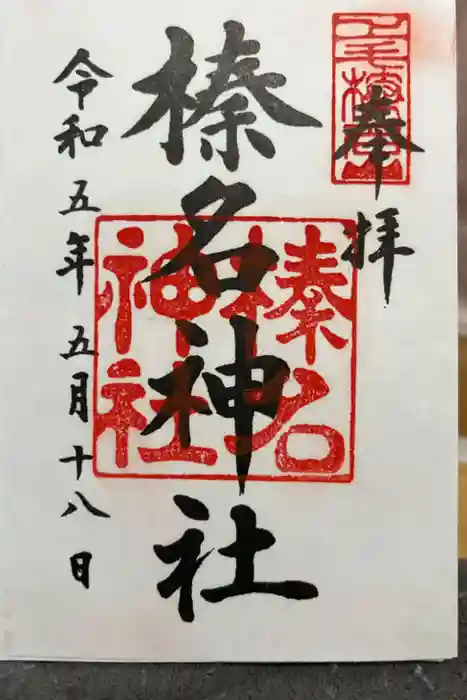 奉拝
榛名神社
榛名
神社
令和五年五月十八日